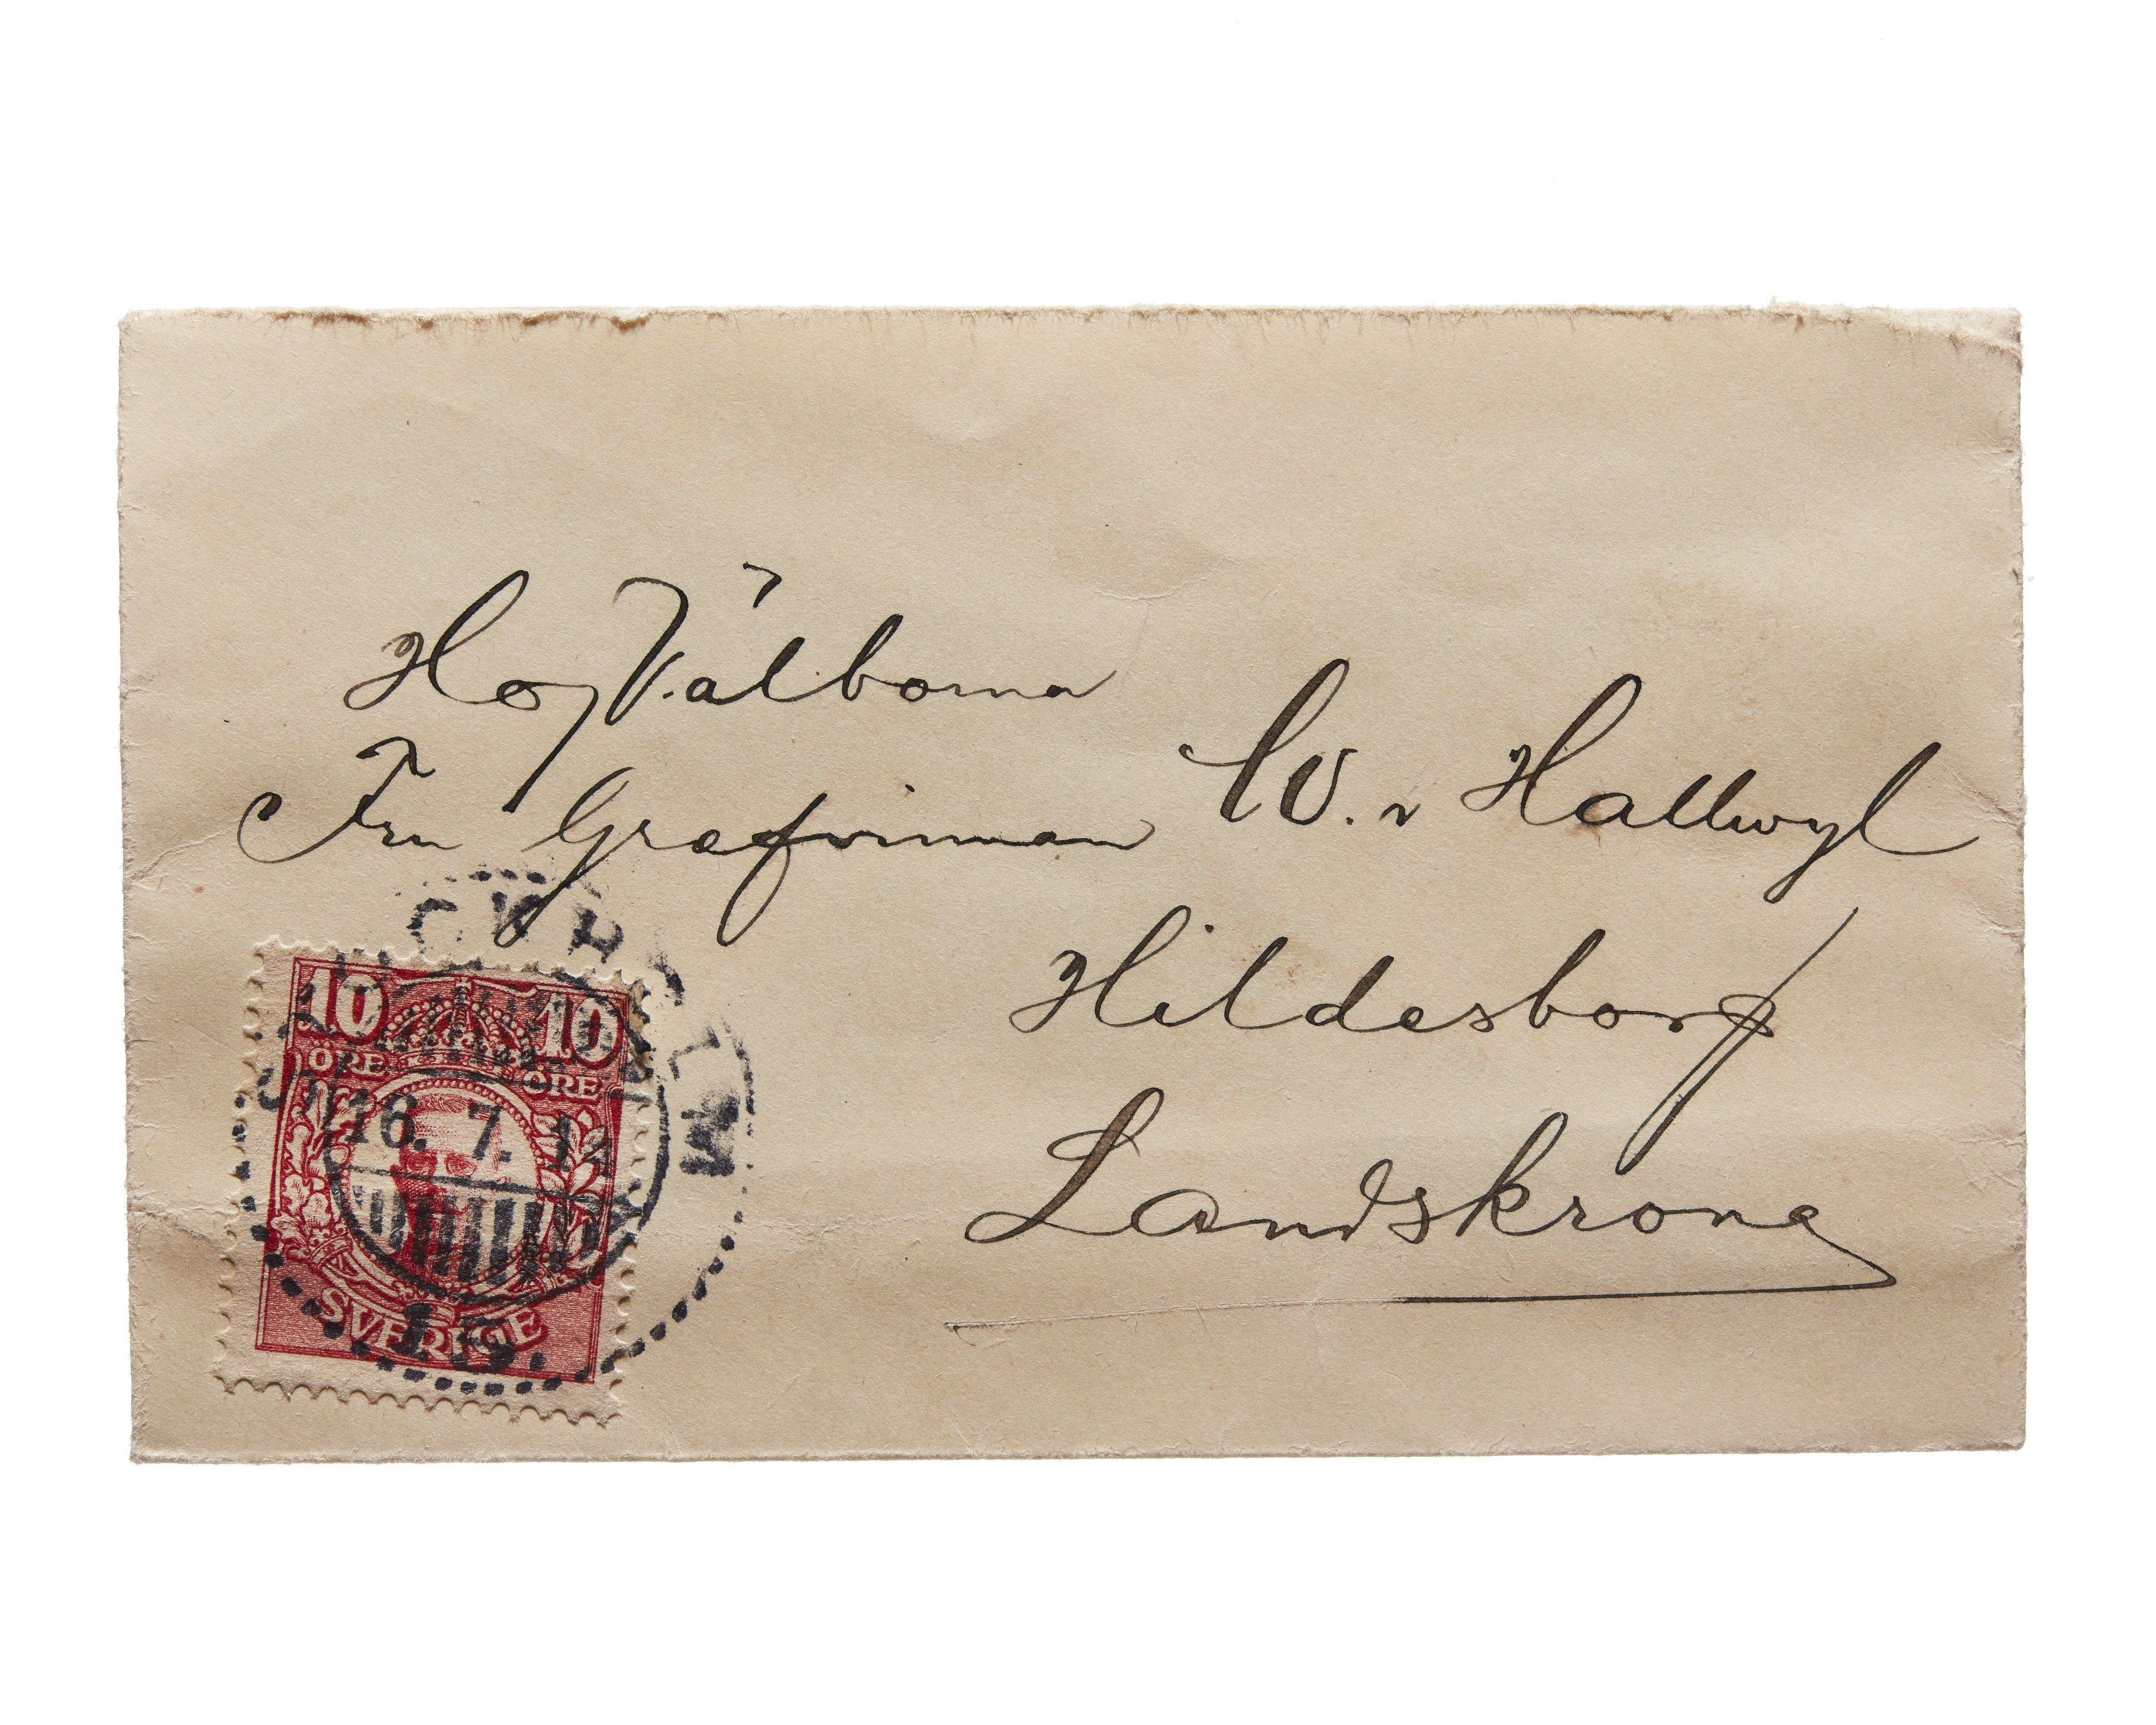 HögVälborna
Fru Grefvinnan W. v Hallwyl
Hildesborg
Landskrona
10 10
ÖRE ÖRE
16. 7. 14
SVERIGE
STOCKHOLM
15.